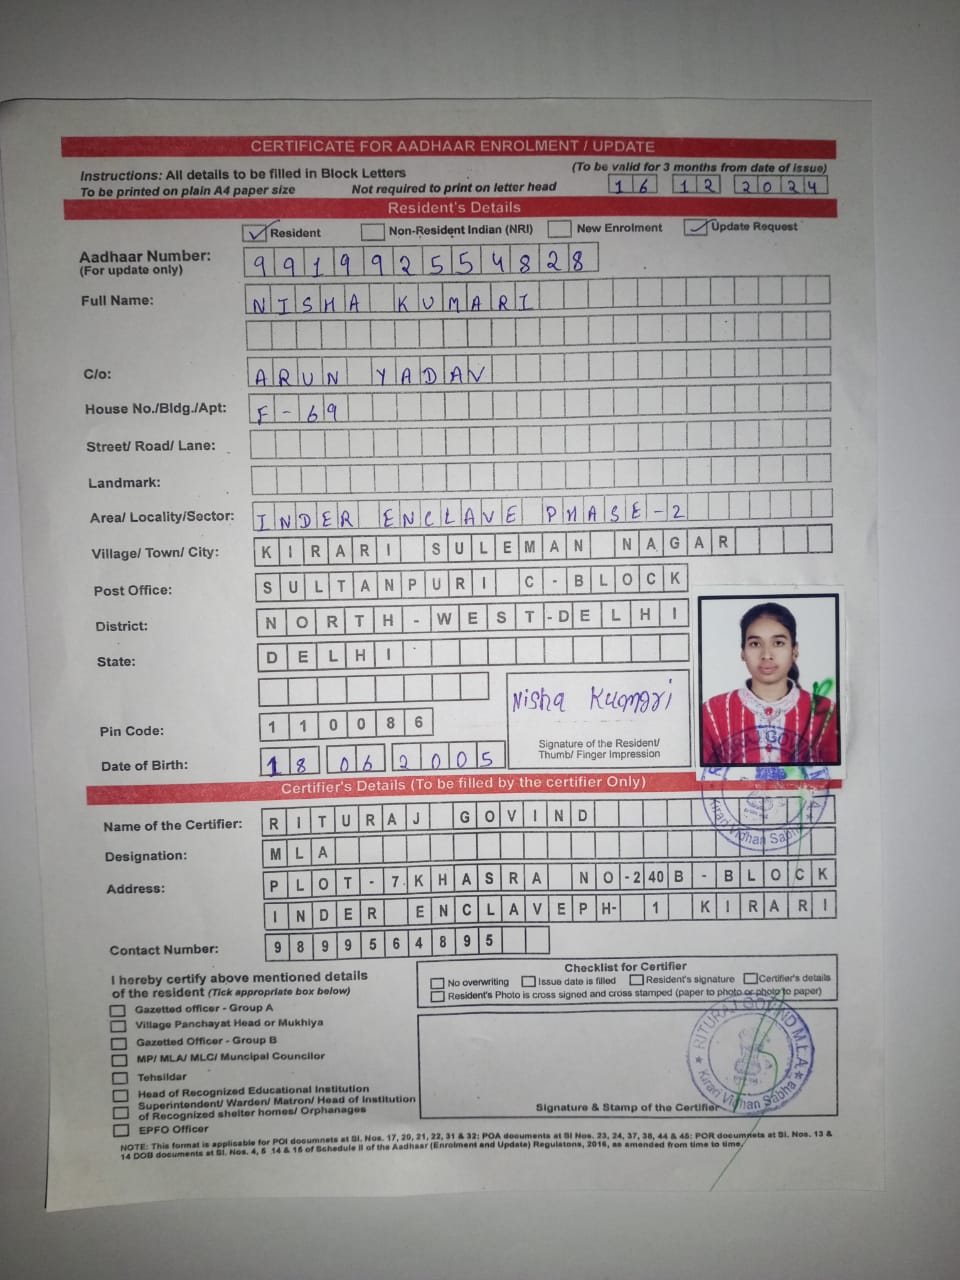 CERTIFICATE FOR AADHAAR ENROLMENT / UPDATE
Instructions: All details to be filled in Block Letters
(To be valid for 3 months from date of issue)
To be printed on plain A4 paper size Not required to print on letter head 16 12 2024
Resident's Details
Resident Non-Resident Indian (NRI) New Enrolment Update Request
Aadhaar Number: 991992554828
(For update only)
Full Name: NISHA KUMARI
C/o: ARUN YADAV
House No./Bldg./Apt: F-69
Street/ Road/ Lane:
Landmark:
Area/ Locality/Sector: INDER ENCLAVE PHASE-2
Village/ Town/ City: KIRARI SULEMAN NAGAR
Post Office: SULTANPURI C-BLOCK
District: NORTH-WEST-DELHI
State: DELHI
Nisha Kumari
Pin Code: 110086
Signature of the Resident/
Thumb/ Finger Impression
Date of Birth: 18 06 2005
Certifier's Details (To be filled by the certifier Only)
Name of the Certifier: RITURAJ GOVIND
Designation: MLA
Address: PLOT-7.KHASRA NO-240B-BLOCK
INDER ENCLAVEPH- 1 KIRARI
Contact Number: 9899564895
I hereby certify above mentioned details
of the resident (Tick appropriate box below)
Gazetted officer - Group A
Village Panchayat Head or Mukhiya
Gazetted Officer - Group B
MP/ MLA/ MLC/ Muncipal Councilor
Tehsildar
Head of Recognized Educational Institution
Superintendent/ Warden/ Matron/ Head of Institution
of Recognized shelter homes/ Orphanages
EPFO Officer
Checklist for Certifier
No overwriting Issue date is filled Resident's signature Certifier's details
Resident's Photo is cross signed and cross stamped (paper to photo or photo to paper)
RITURAJ GOVIND M.L.A.
Kirari Vidhan Sabha
Signature & Stamp of the Certifier
NOTE: This format is applicable for POI documnets at Sl. Nos. 17, 20, 21, 22, 31 & 32: POA documents at Sl Nos. 23, 24, 37, 38, 44 & 45: POR documnets at Sl. Nos. 13 &
14 DOB documents at Sl. Nos. 4, 5 14 & 15 of Schedule II of the Aadhaar (Enrolment and Update) Regulatons, 2016, as amended from time to time.